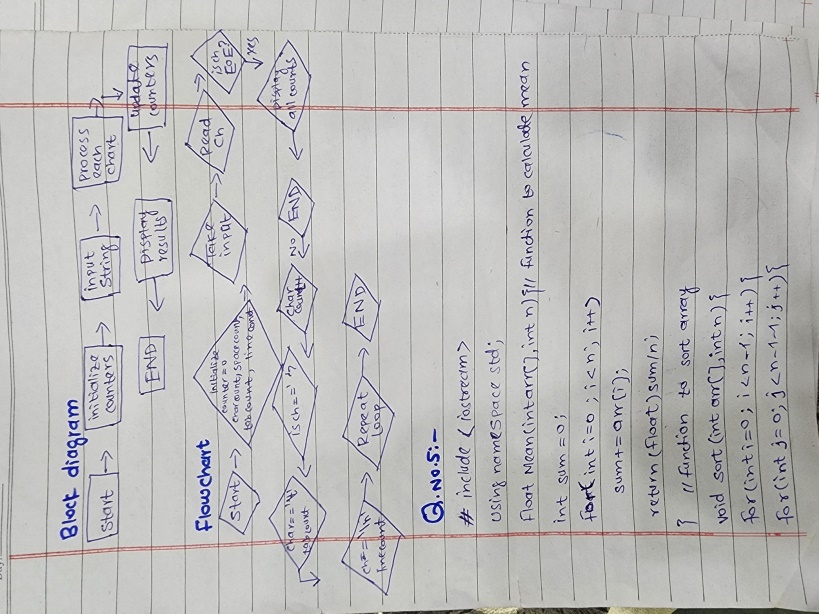 Block diagram
Start
initialize
counters
input
String
process
each
chart
update
counters
Display
results
END
Flowchart
Start
Initialize
counter = 0
charcount, spacecount,
tabcount, linecount
Take
input
Read
Ch
is ch
EOF?
yes
Display
all counts
END
NO
char
count++
is ch == ' '?
char == '\t'
tab count
ch == '\n'
linecount
Repeat
Loop
END
Q.No.5:-
# include <iostream>
Using namespace std;
Float Mean(int arr[], int n){ // function to calculate mean
int sum = 0;
for( int i=0; i<n; i++)
sum+= arr[i];
return (float) sum/n;
} // function to sort array
void sort (int arr[], int n) {
for (int i=0; i<n-1; i++) {
for (int j=0; j<n-1-1; j++) {